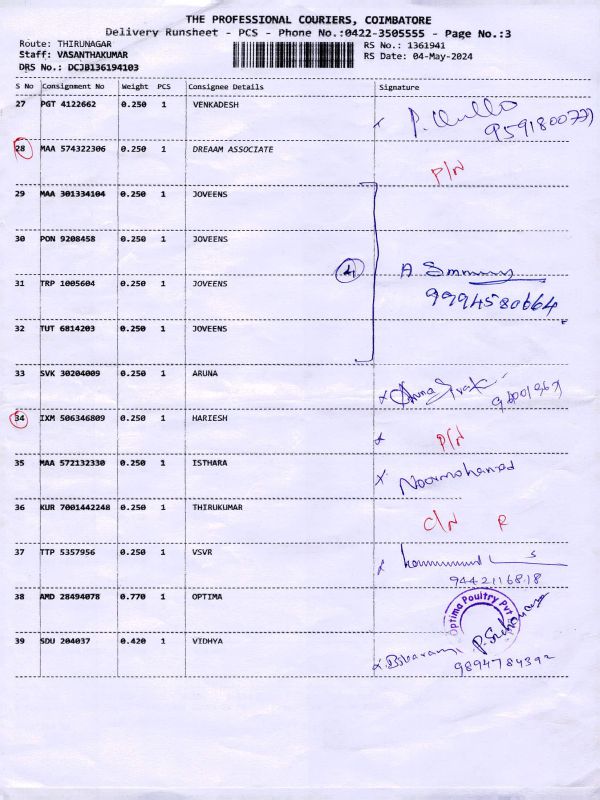 THE PROFESSIONAL COURIERS, COIMBATORE
Delivery Runsheet - PCS - Phone No.:0422-3505555 - Page No.:3
Route: THIRUNAGAR RS No.: 1361941
Staff: VASANTHAKUMAR RS Date: 04-May-2024
DRS No.: DCJB136194103
S No Consignment No Weight PCS Consignee Details Signature
27 PGT 4122662 0.250 1 VENKADESH
28 MAA 574322306 0.250 1 DREAAM ASSOCIATE
P/N
29 MAA 301334104 0.250 1 JOVEENS
30 PON 9208458 0.250 1 JOVEENS
4
31 TRP 1005604 0.250 1 JOVEENS
9994580664
32 TUT 6814203 0.250 1 JOVEENS
33 SVK 30204009 0.250 1 ARUNA
34 IXM 506346809 0.250 1 HARIESH
P/N
35 MAA 572132330 0.250 1 ISTHARA
Noormohamed
36 KUR 7001442248 0.250 1 THIRUKUMAR
C/N R
37 TTP 5357956 0.250 1 VSVR
9442116818
38 AMD 28494078 0.770 1 OPTIMA
Optima Poultry Pvt
39 SDU 204037 0.420 1 VIDHYA
9894784392